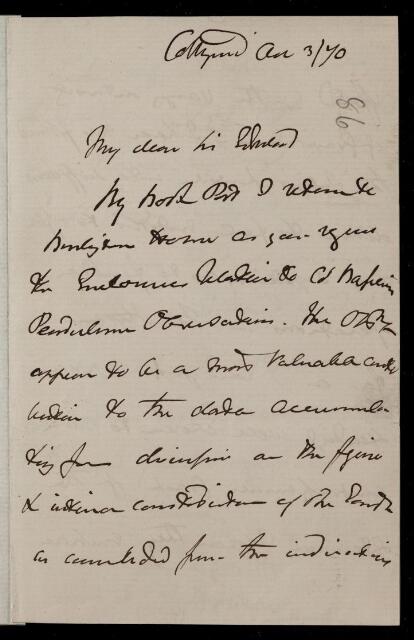 Collingwood Oct 3/70
86
My dear Sir Edward
By Book Post I return to
Burlington House as you request
the Enclosures relative to Cl Basevi's
Pendulum Observations. The Obsns
appear to be a most valuable contri
bution to the data accumula
ting for discussion on the figure
& interior constitution of the Earth
as concluded from the indications